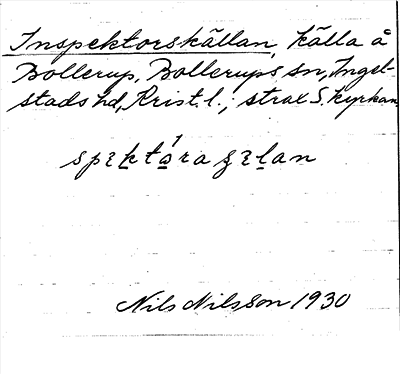 Inspektorskällan, källa å
Bollerup, Bollerups sn, Ingel-
stads hd, Krist. l.; strax S. kyrkan.
Nils Nilsson 1930